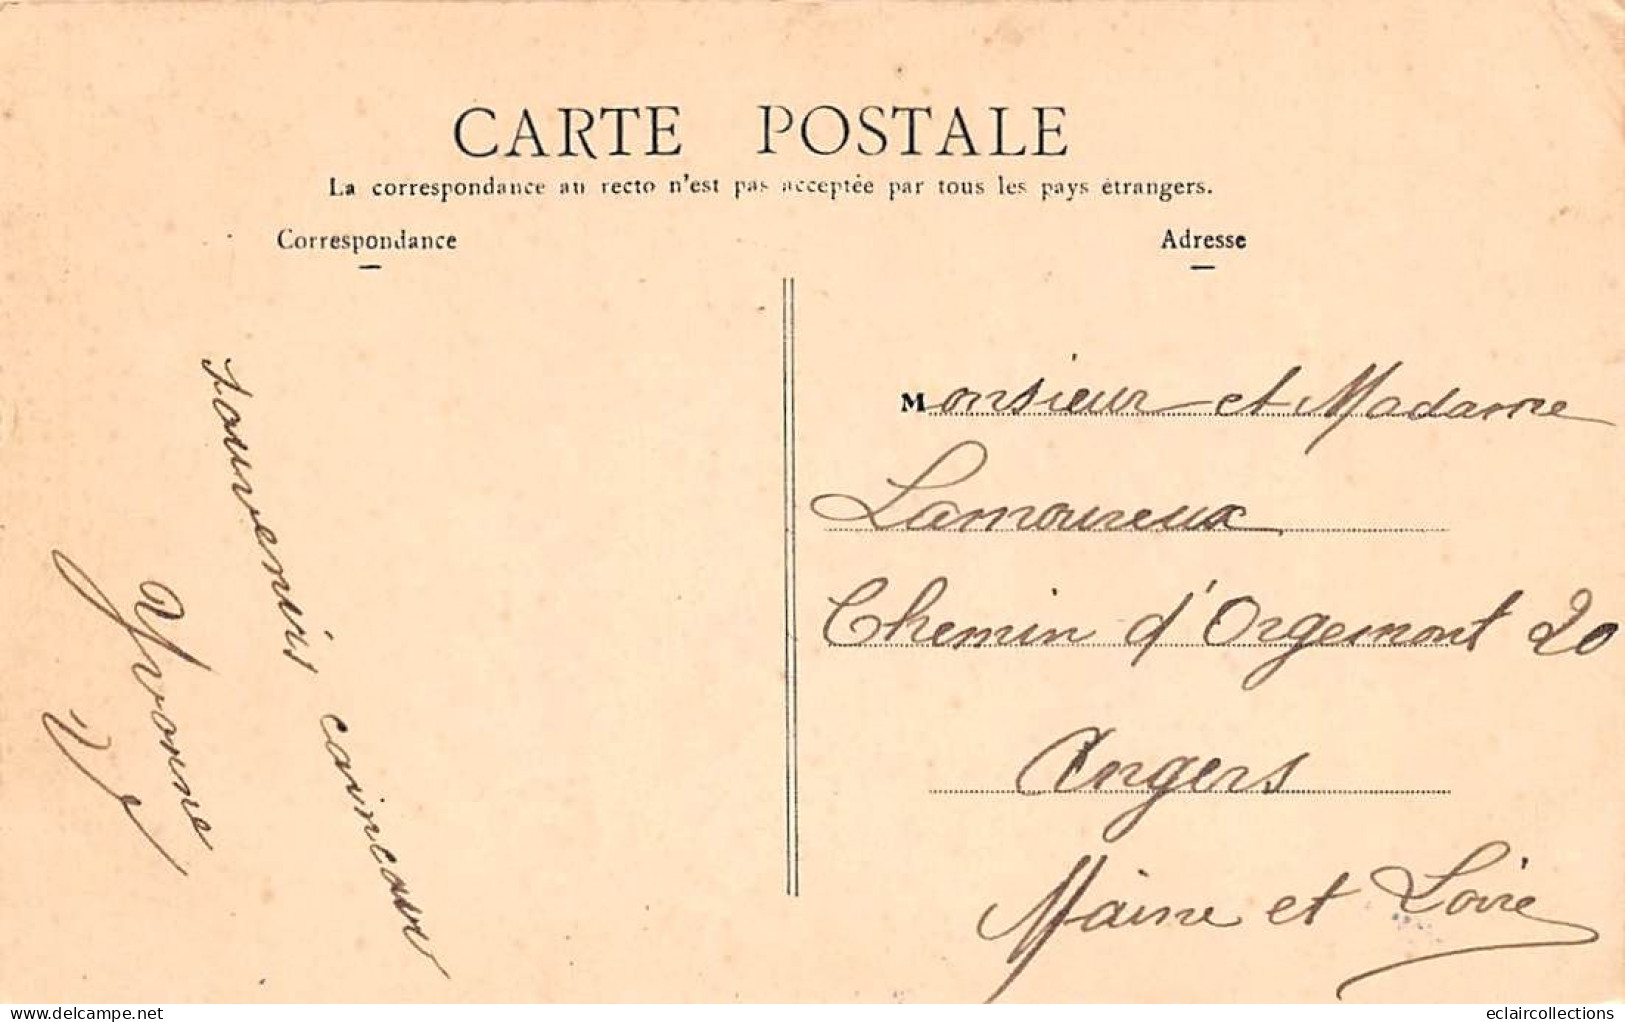 CARTE POSTALE
La correspondance au recto n'est pas acceptée par tous les pays étrangers.
Correspondance
Adresse
souvenirs
Yvonne
Monsieur et Madame
Lamoureux
Chemin d'Orgemont 20
Angers
Maine et Loire
delcampe.net
eclaircollections